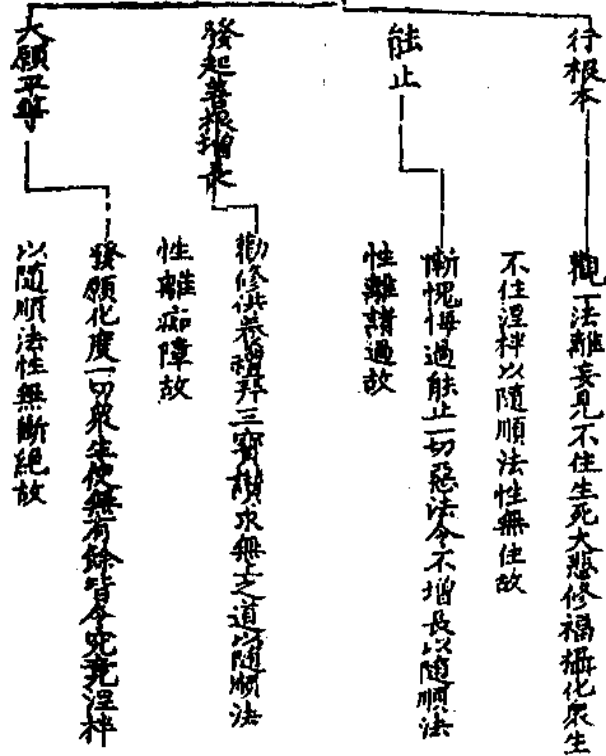 行根本
觀一法離妄見不住生死大悲修福攝化衆生
不住涅槃以隨順法性無住故
能止
慚愧悔過能止一切惡法令不增長以隨順法
性離諸過故
發起善根增長
勤修供養禮拜三寶讚求無上之道以隨順法
性離痴障故
大願平等
發願化度一切衆生使無有餘皆令究竟涅槃
以隨順法性無斷絕故